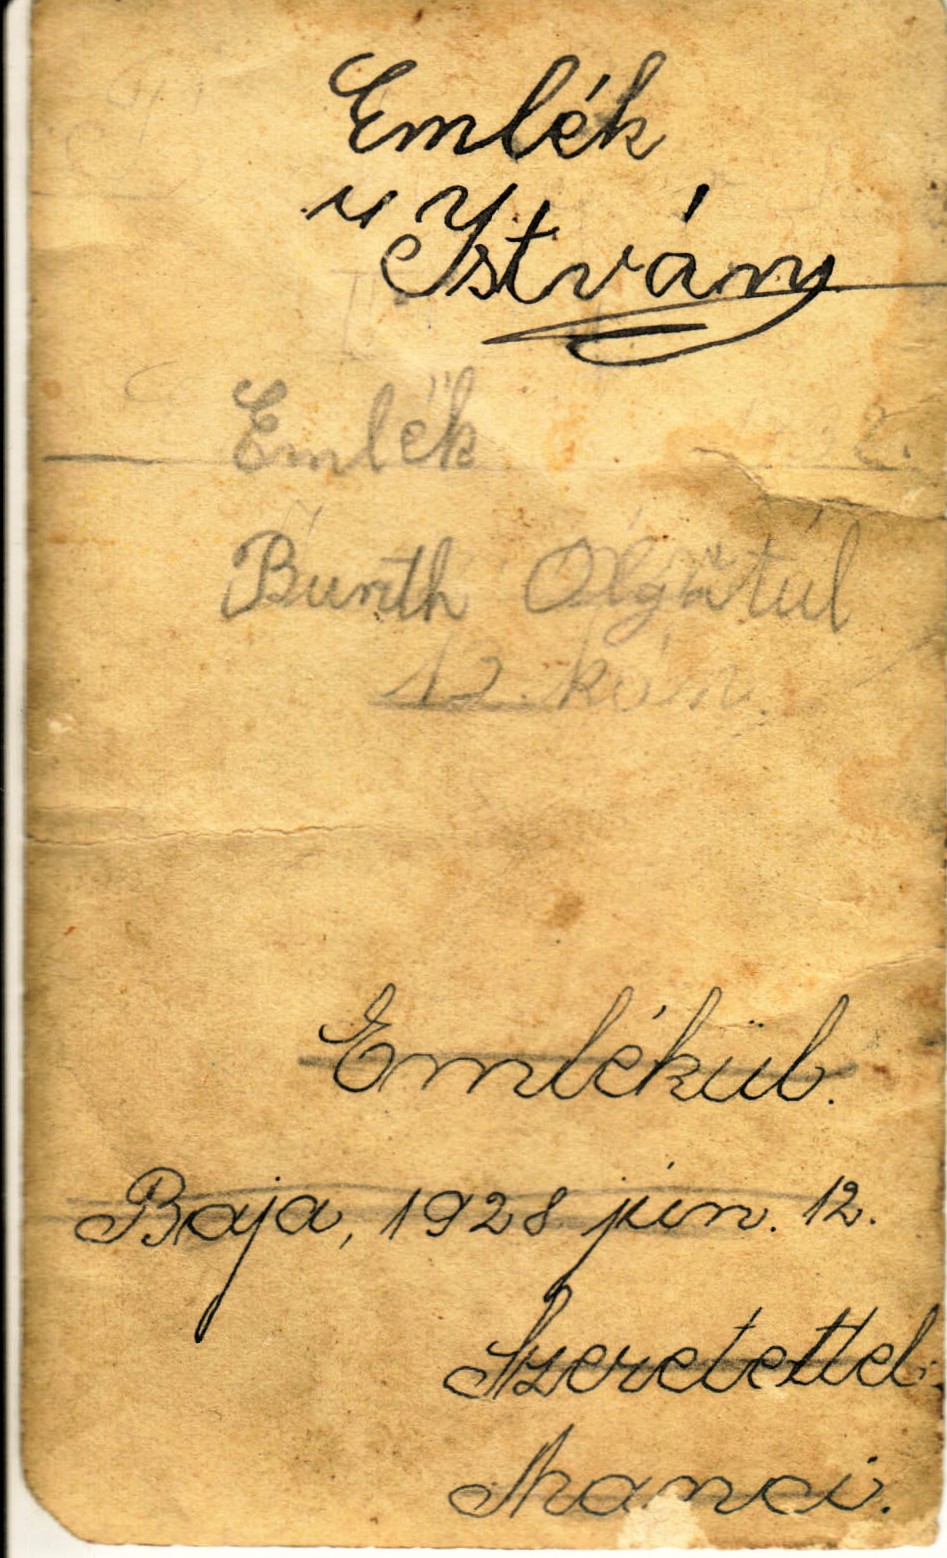 Emlék
u István
Emlék
Olgátúl
12.
Emlékül.
Baja, 1928 jún. 12.
Szeretettel
Manci.